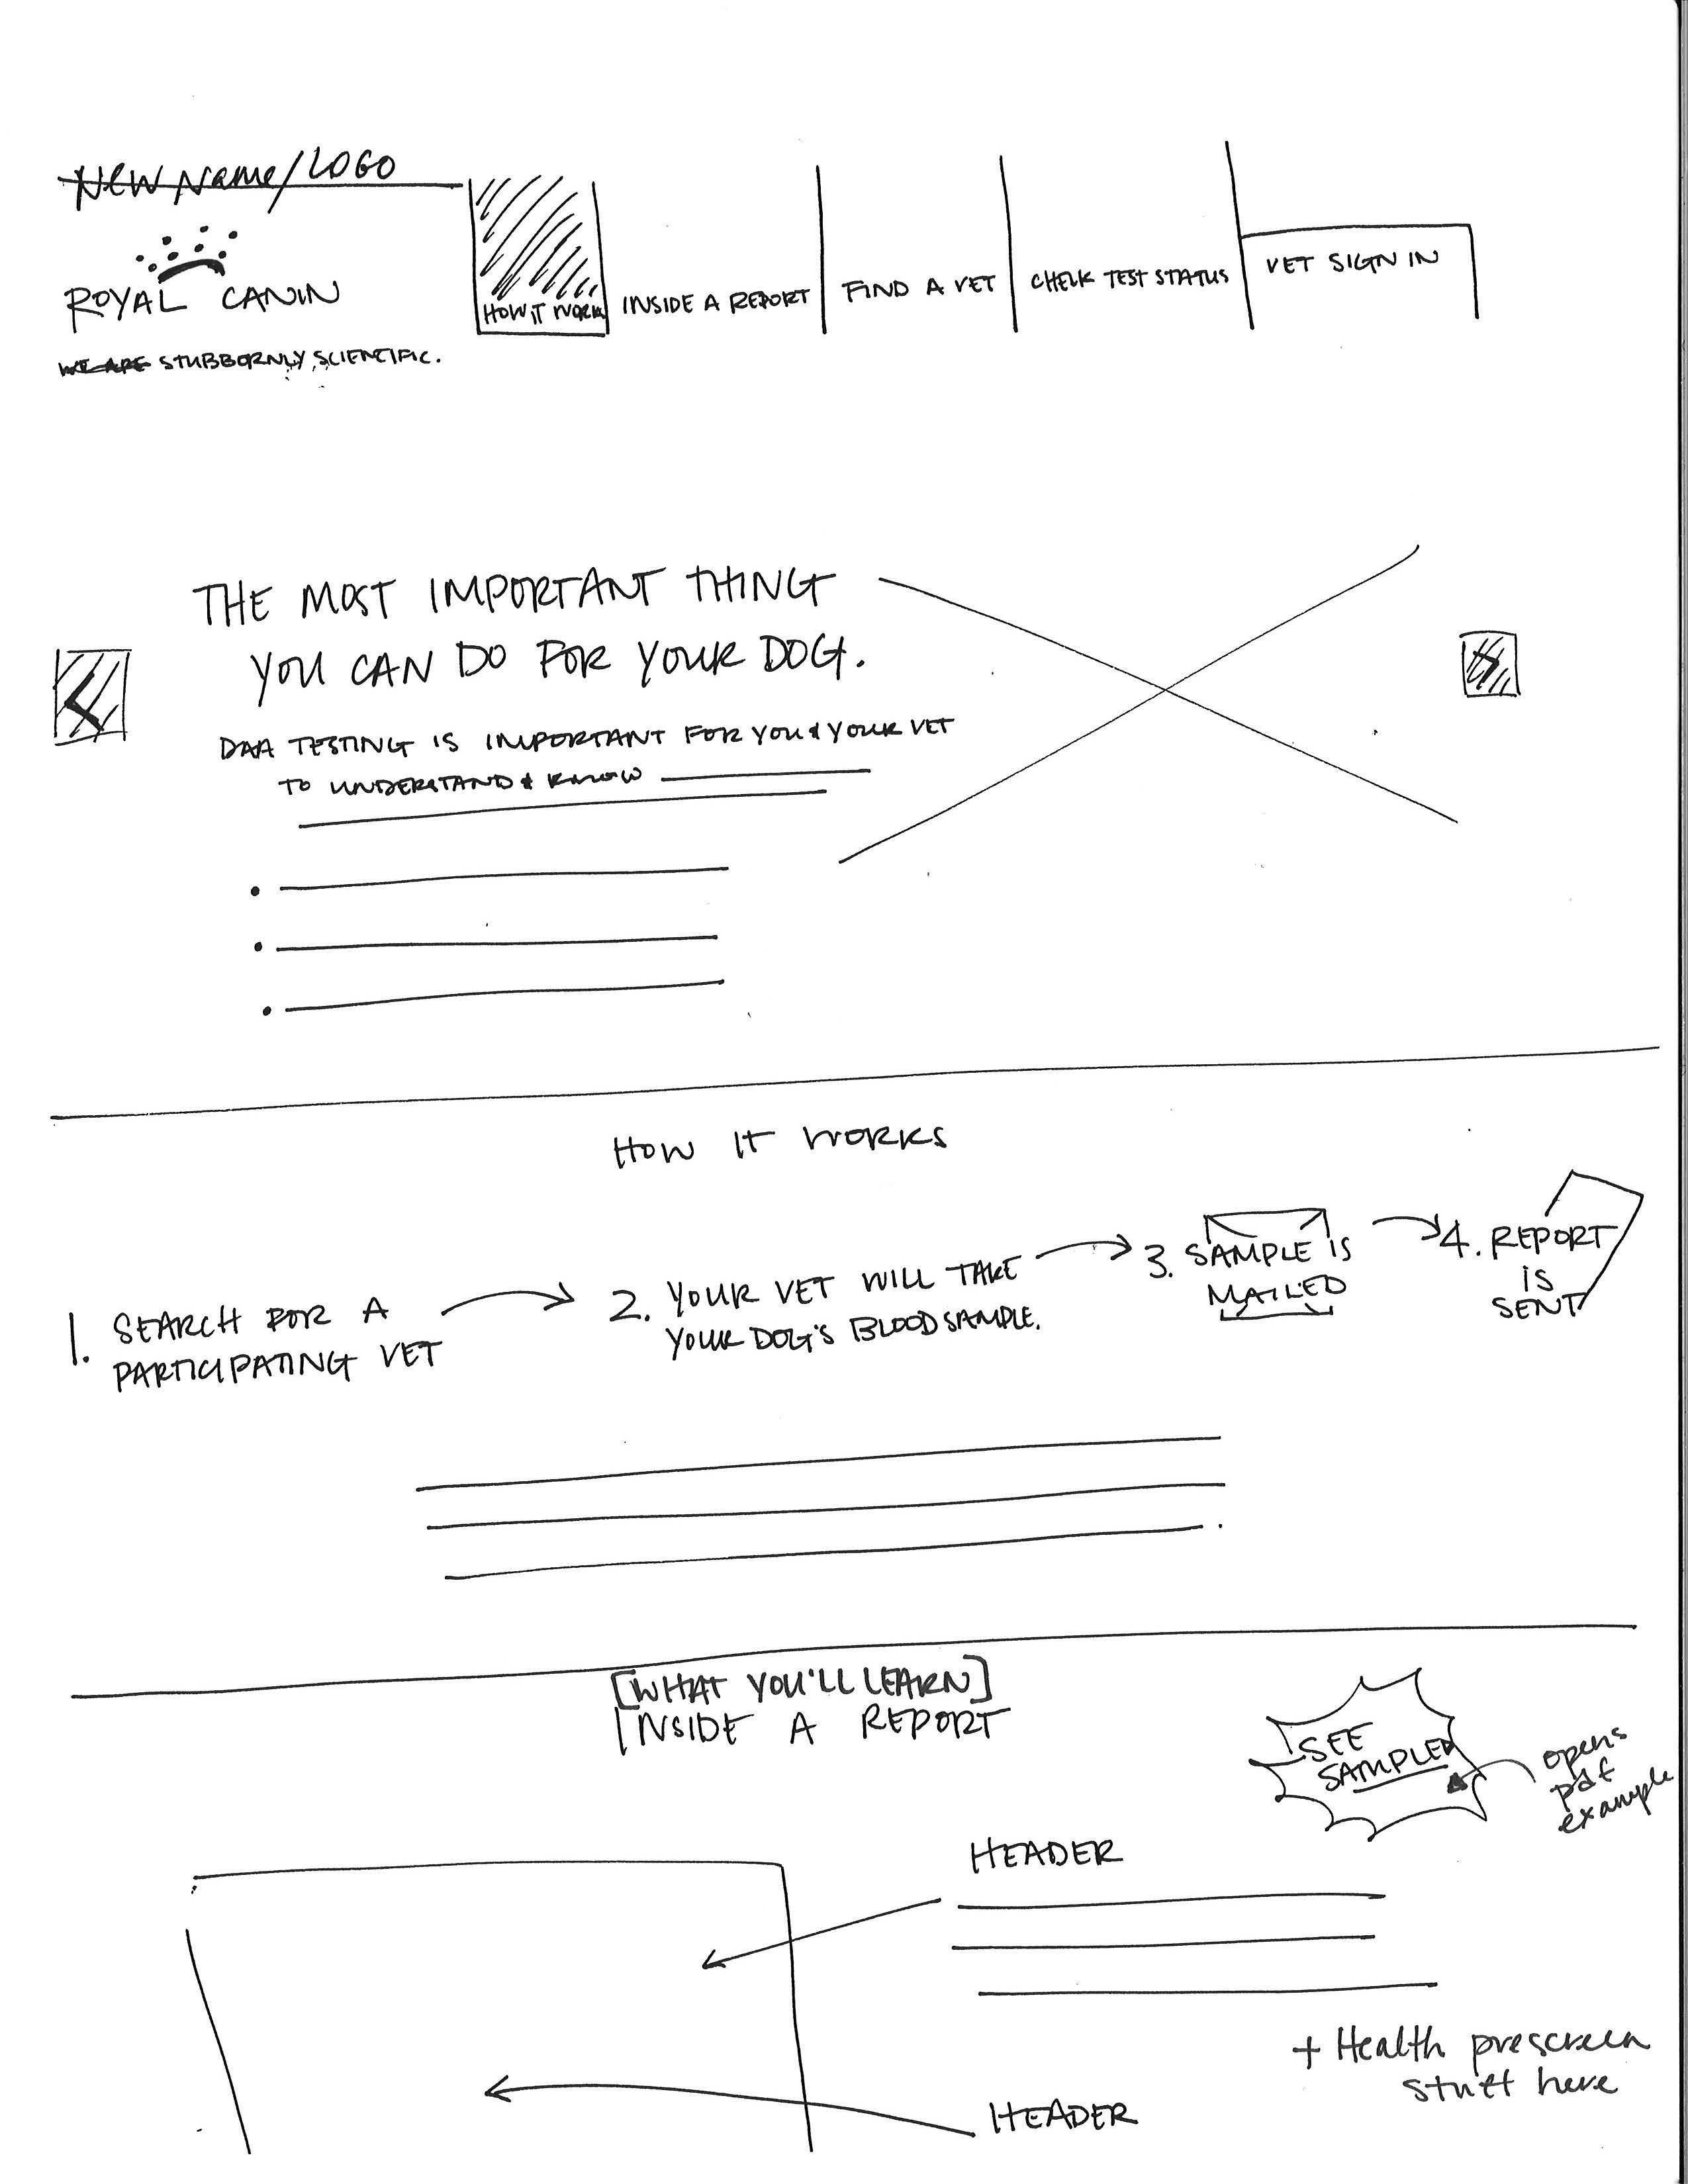 NEW Name/LOGO
ROYAL CANIN
WE ARE STUBBORNLY SCIENTIFIC.
HOW IT WORKS
INSIDE A REPORT
FIND A VET
CHECK TEST STATUS
VET SIGN IN
THE MOST IMPORTANT THING
YOU CAN DO FOR YOUR DOG.
DNA TESTING IS IMPORTANT FOR YOU & YOUR VET
TO UNDERSTAND & KNOW
HOW IT WORKS
1. SEARCH FOR A
PARTICIPATING VET
2. YOUR VET WILL TAKE
YOUR DOG'S BLOOD SAMPLE.
3. SAMPLE IS
MAILED
4. REPORT
IS
SENT
[WHAT YOU'LL LEARN]
INSIDE A REPORT
SEE
SAMPLE
opens
pdf
example
HEADER
+ Health prescreen
stuff here
HEADER